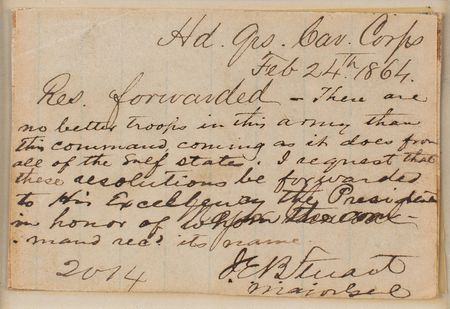 Hd. Qrs. Cav. Corps
Feb 24th 1864.
Res. forwarded — There are
no better troops in this army than
this command, coming as it does from
all of the Gulf states. I request that
these resolutions be forwarded
to His Excellency the President
in honor of whom the com-
-mand recd. its name
2014
J.E.B. Stuart
Maj. Genl